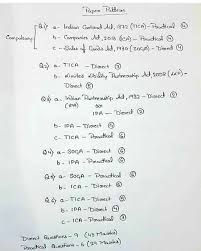 Paper Pattern
Compulsory
Q1) a - Indian Contract Act, 1872 (TICA) - Practical
b - Companies Act, 2013 (CA) - Practical
c - Sales of Goods Act, 1930 (SOGA) - Direct
Q2) a - TICA - Direct
b - Limited Liability Partnership Act, 2008 (LLP) - Direct
Q3) a - Indian Partnership Act, 1932 - Direct
(IPA) or
IPA - Direct
b - CA - Direct
c - TICA - Practical
Q4) a - SOGA - Direct
b - IPA - Practical
Q5) a - SOGA - Practical
b - CA - Direct
Q6) a - TICA - Direct
b - IPA - Direct
c - CA - Practical
Direct Questions - 9
Practical Questions - 6